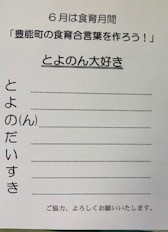 6月は食育月間
「豊能町の食育合言葉を作ろう！」
とよのん大好き
と
よ
の(ん)
だ
い
す
き
ご協力、よろしくお願いいたします。